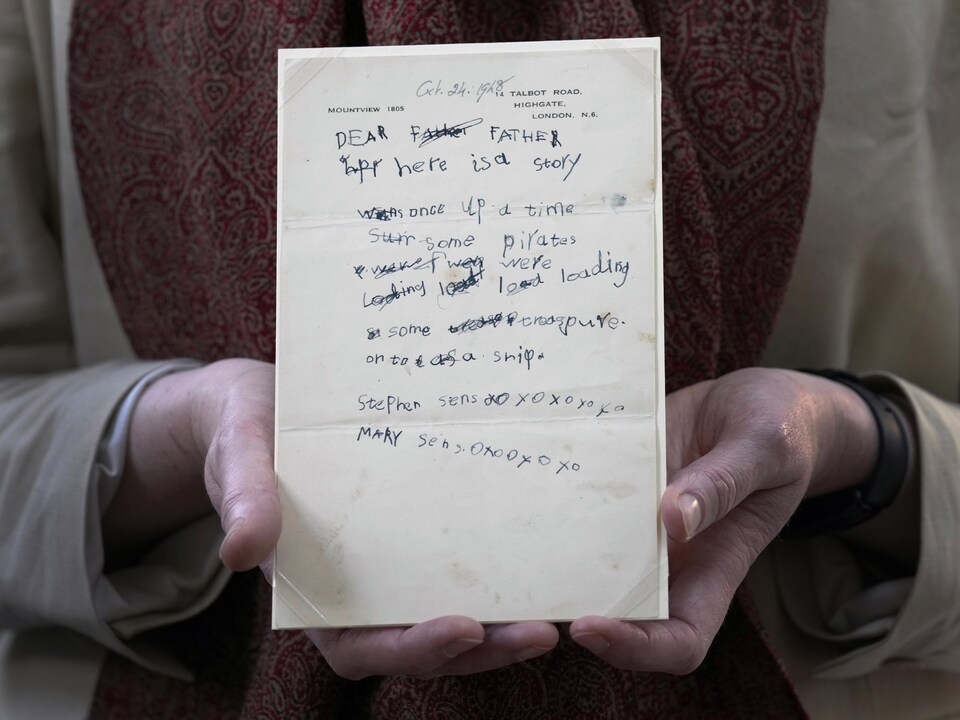 Oct. 24. 1948
MOUNTVIEW 1805
14 TALBOT ROAD,
HIGHGATE,
LONDON, N.6.
DEAR Father FATHER
here is a story
once up a time
Sum some pirates
were
Loading load loading
some treaspure.
on to a snip.
Stephen sens xo x o x o x o x o
MARY sens. O x o o x o x o